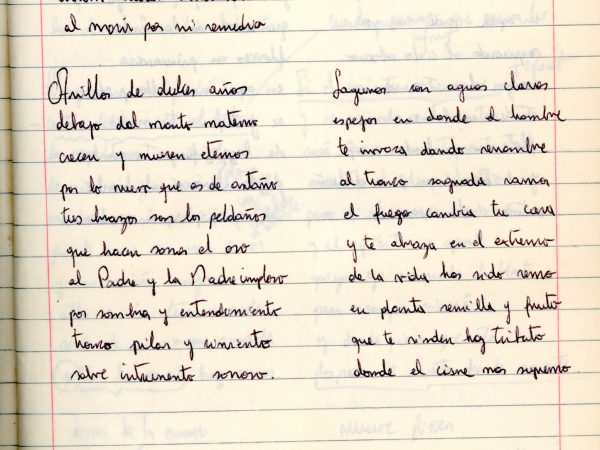 al morir por mi remedia
Anillos de dulces años
debajo del manto materno
crecen y mueren eternos
por lo nuevo que es de antaño
tus brazos son los peldaños
que hacen sonar el oro
al Padre y la Madre imploro
por sombra y entendimiento
tronco pilar y cimiento
sabre intrumento sonoro.
Lagunas son aguas claras
espejos en donde el hombre
te invoca dando renombre
al tronco sagrada rama
el fuego cambia tu cara
y te abraza en el extremo
de la vida has sido remo
en planta semilla y fruto
que te rinden hoy tributo
donde el cisne mas supremo